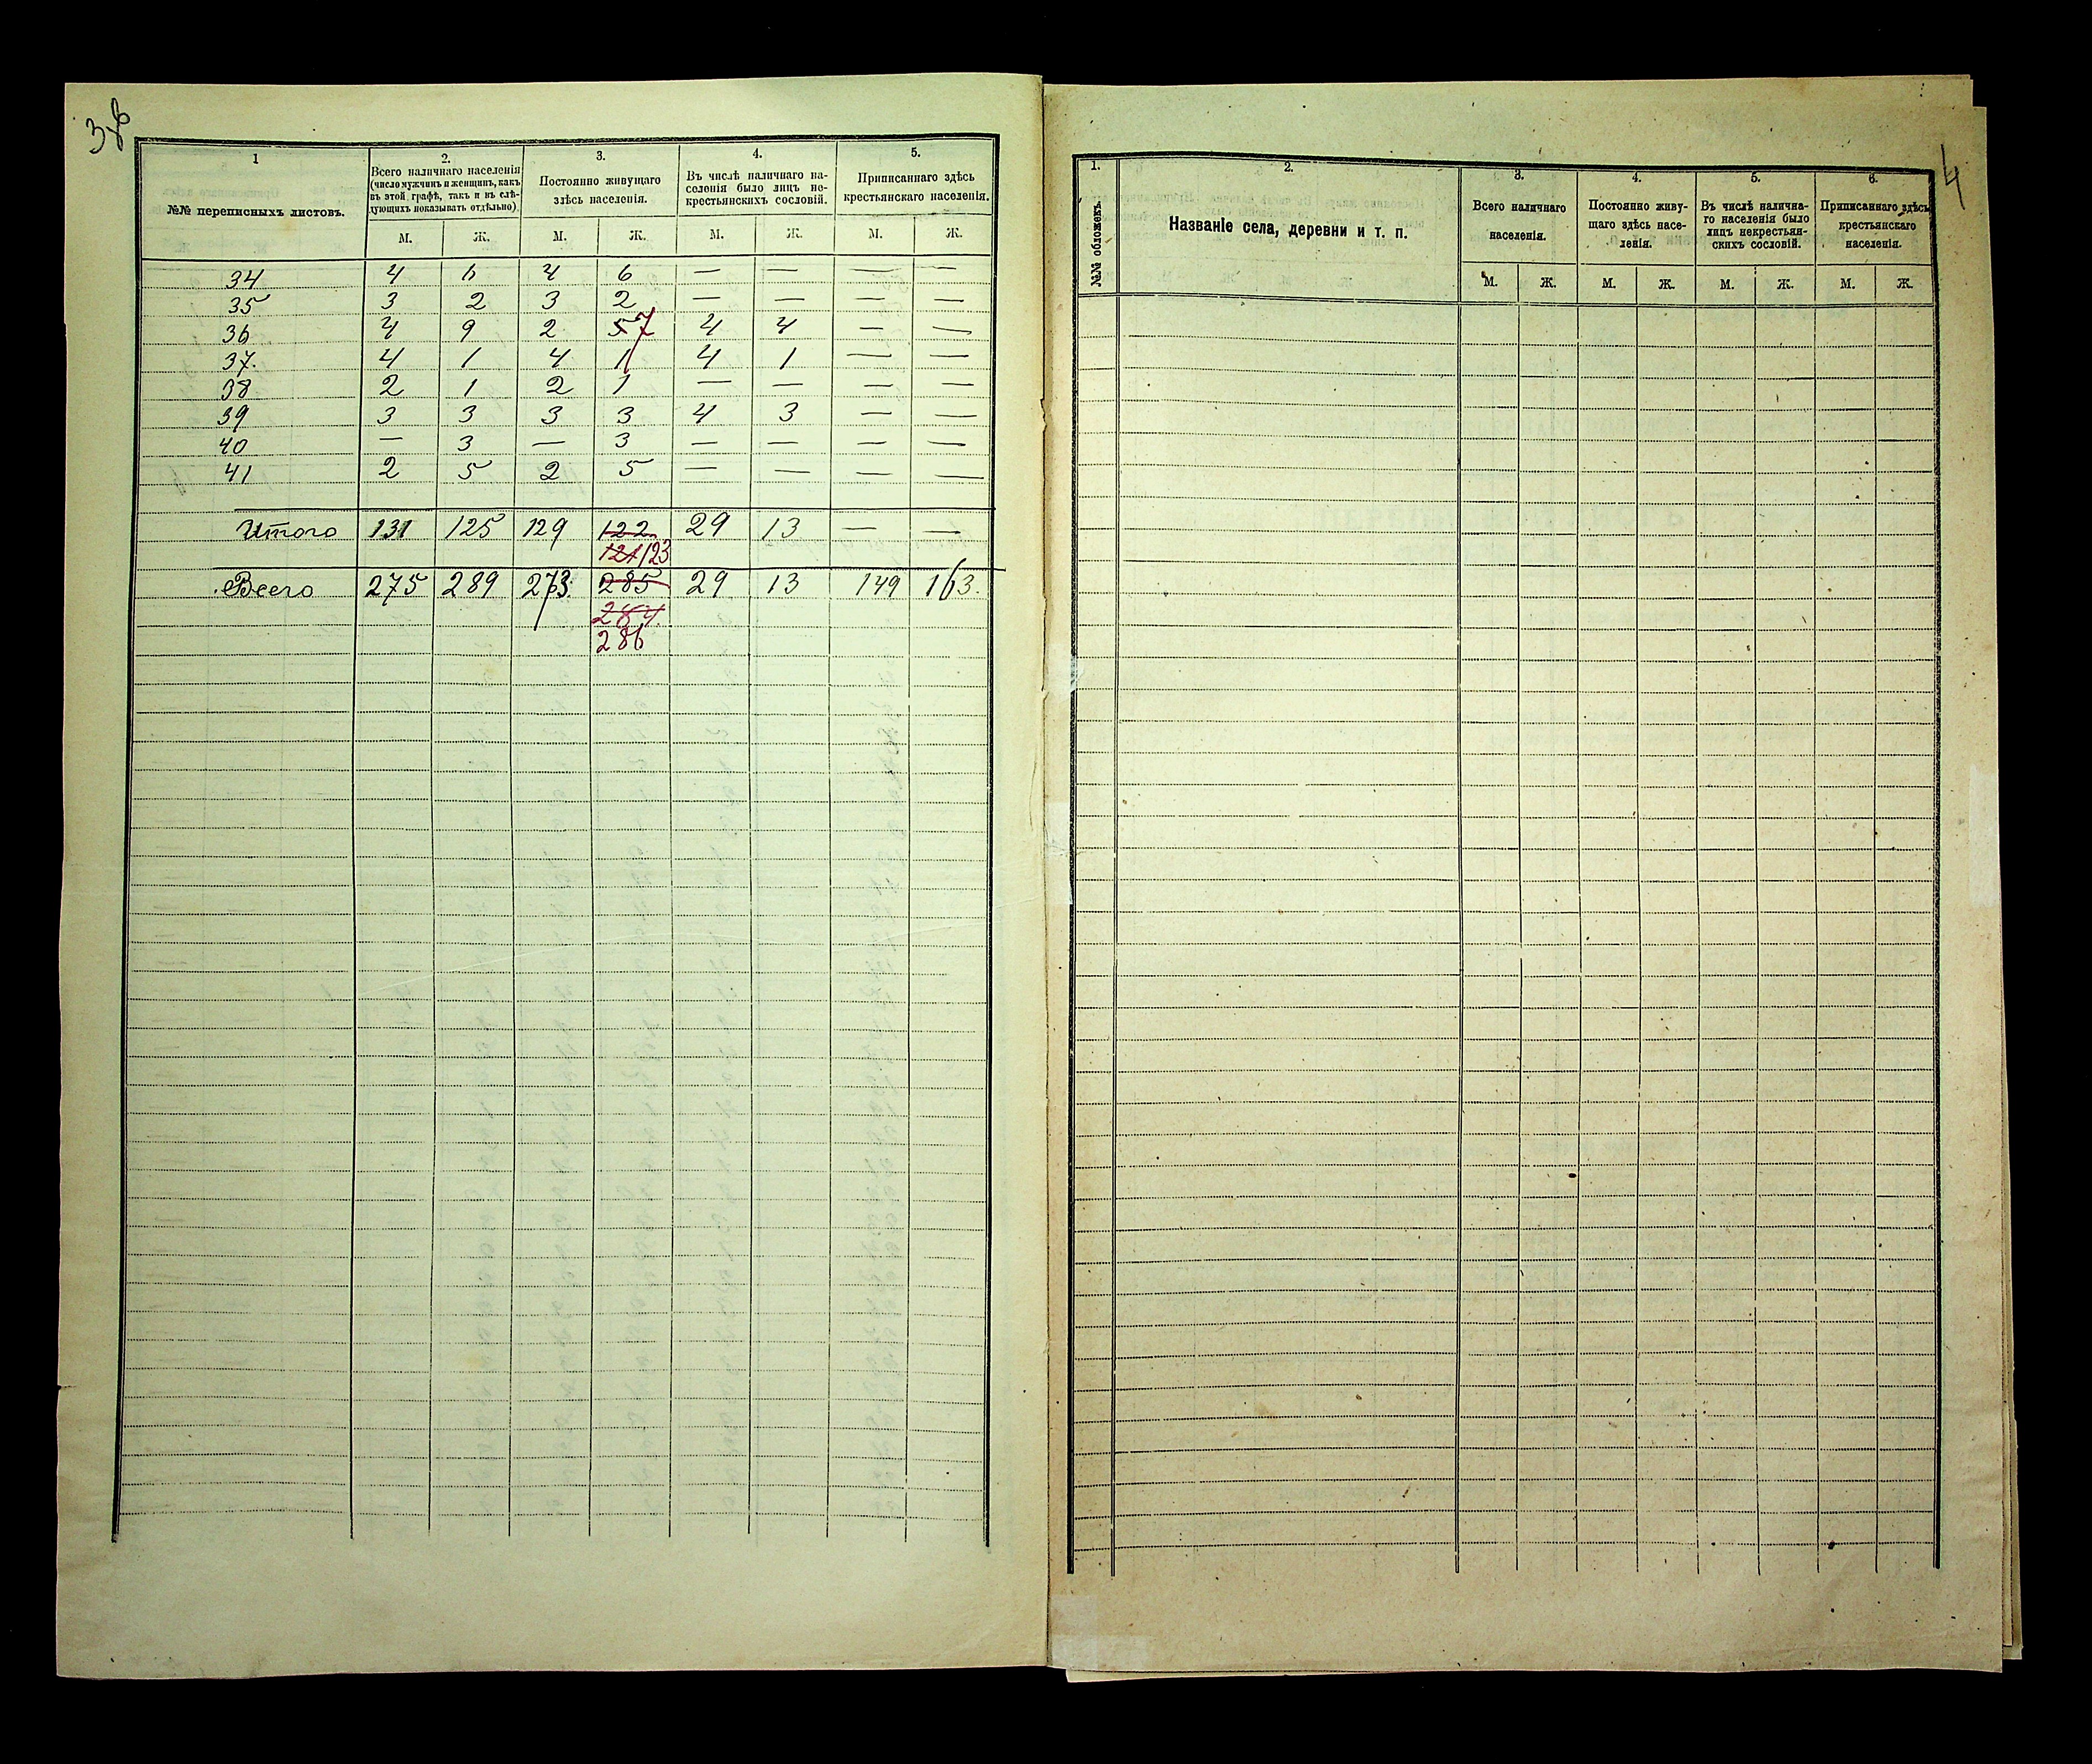 3 об
1
№№ переписныхъ листовъ.
2.
Всего наличнаго населенія
(число мужчинъ и женщинъ, какъ
въ этой графѣ, такъ и въ слѣ-
дующихъ показывать отдѣльно)
3.
Постоянно живущаго
здѣсь населенія.
4.
Въ числѣ наличнаго на-
селенія было лицъ не-
крестьянскихъ сословій.
5.
Приписаннаго здѣсь
крестьянскаго населенія.
М. Ж. М. Ж. М. Ж. М. Ж.
34 4 6 4 6 — — — —
35 3 2 3 2 — — — —
36 4 9 2 5 7 4 4 — —
37. 4 1 4 1 4 1 — —
38 2 1 2 1 — — — —
39 3 3 3 3 4 3 — —
40 — 3 — 3 — — — —
41 2 5 2 5 — — — —
Итого 131 125 129 122 29 13 — —
121 123
Всего 275 289 273. 285 29 13 149 163.
284.
286
4
1.
№№ обложекъ.
2.
Названіе села, деревни и т. п.
3.
Всего наличнаго
населенія.
4.
Постоянно живу-
щаго здѣсь насе-
ленія.
5.
Въ числѣ налична-
го населенія было
лицъ некрестьян-
скихъ сословій.
6.
Приписаннаго здѣсь
крестьянскаго
населенія.
М. Ж. М. Ж. М. Ж. М. Ж.